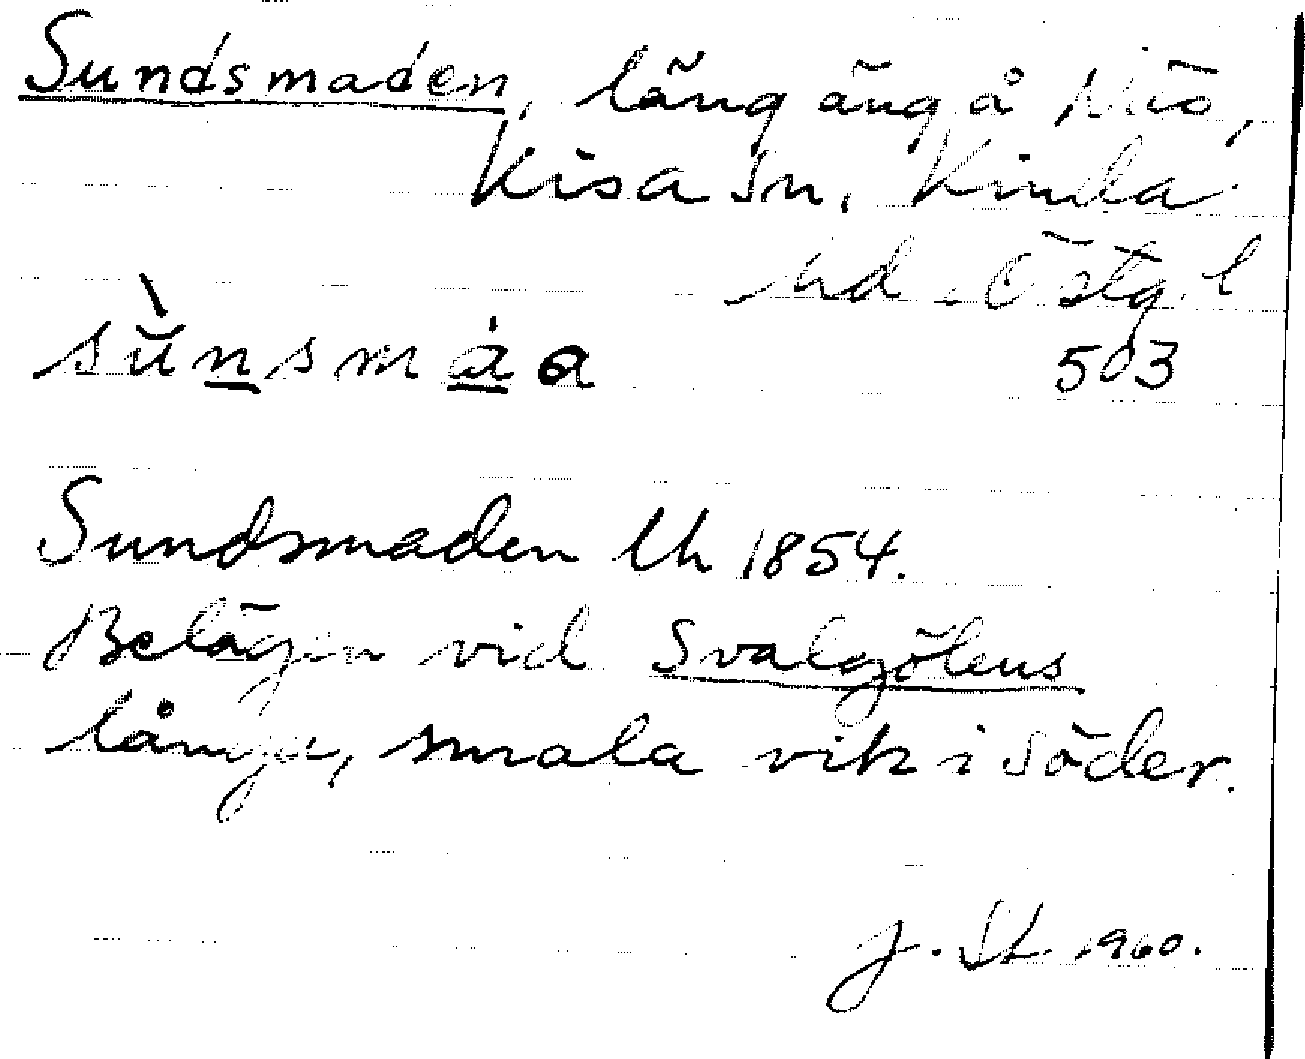 Sundsmaden, läng äng å Niö,
Kisa sn. Kinda
hd. Östg. l
sùnsmáa 503
Sundsmaden Uh 1854.
Belägen vid Svalgölens
långa, smala vik i söder.
J. St. 1960.